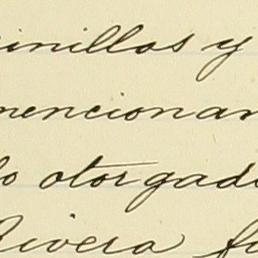 inillos y
mencionan
lo otorgad
Rivera fu